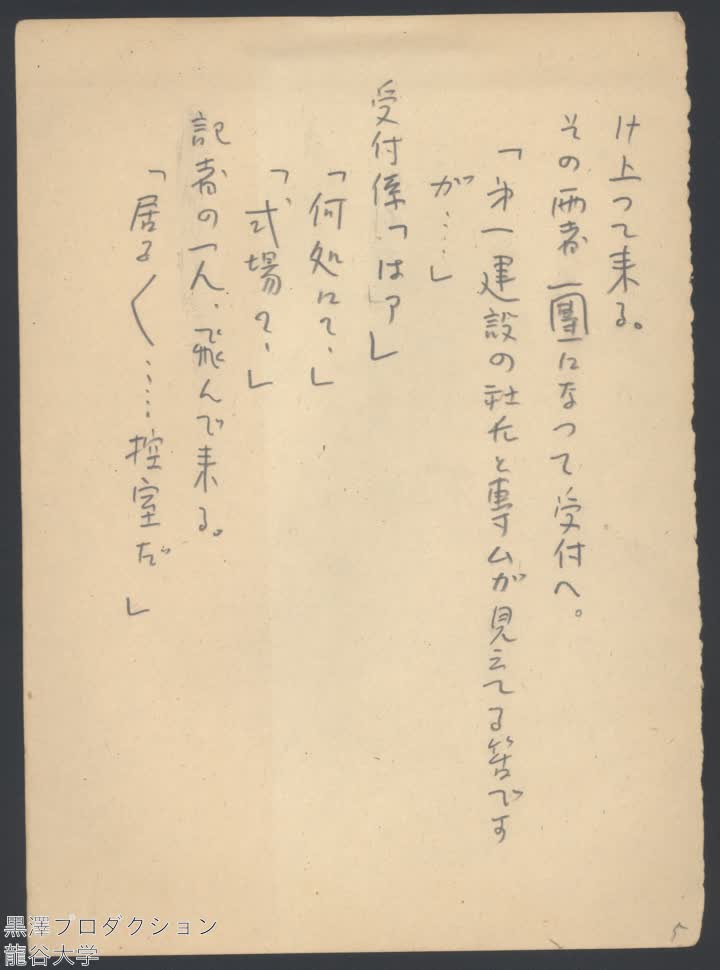 け上つて来る。
その両者一團になつて受付へ。
「第一建設の社長と專ムが見えてる筈です
が……」
受付係「はア」
「何処にて、」
「式場?、」
記者の一人、飛んで来る。
「居る〱……控室だ」
5
黒澤プロダクション
龍谷大学